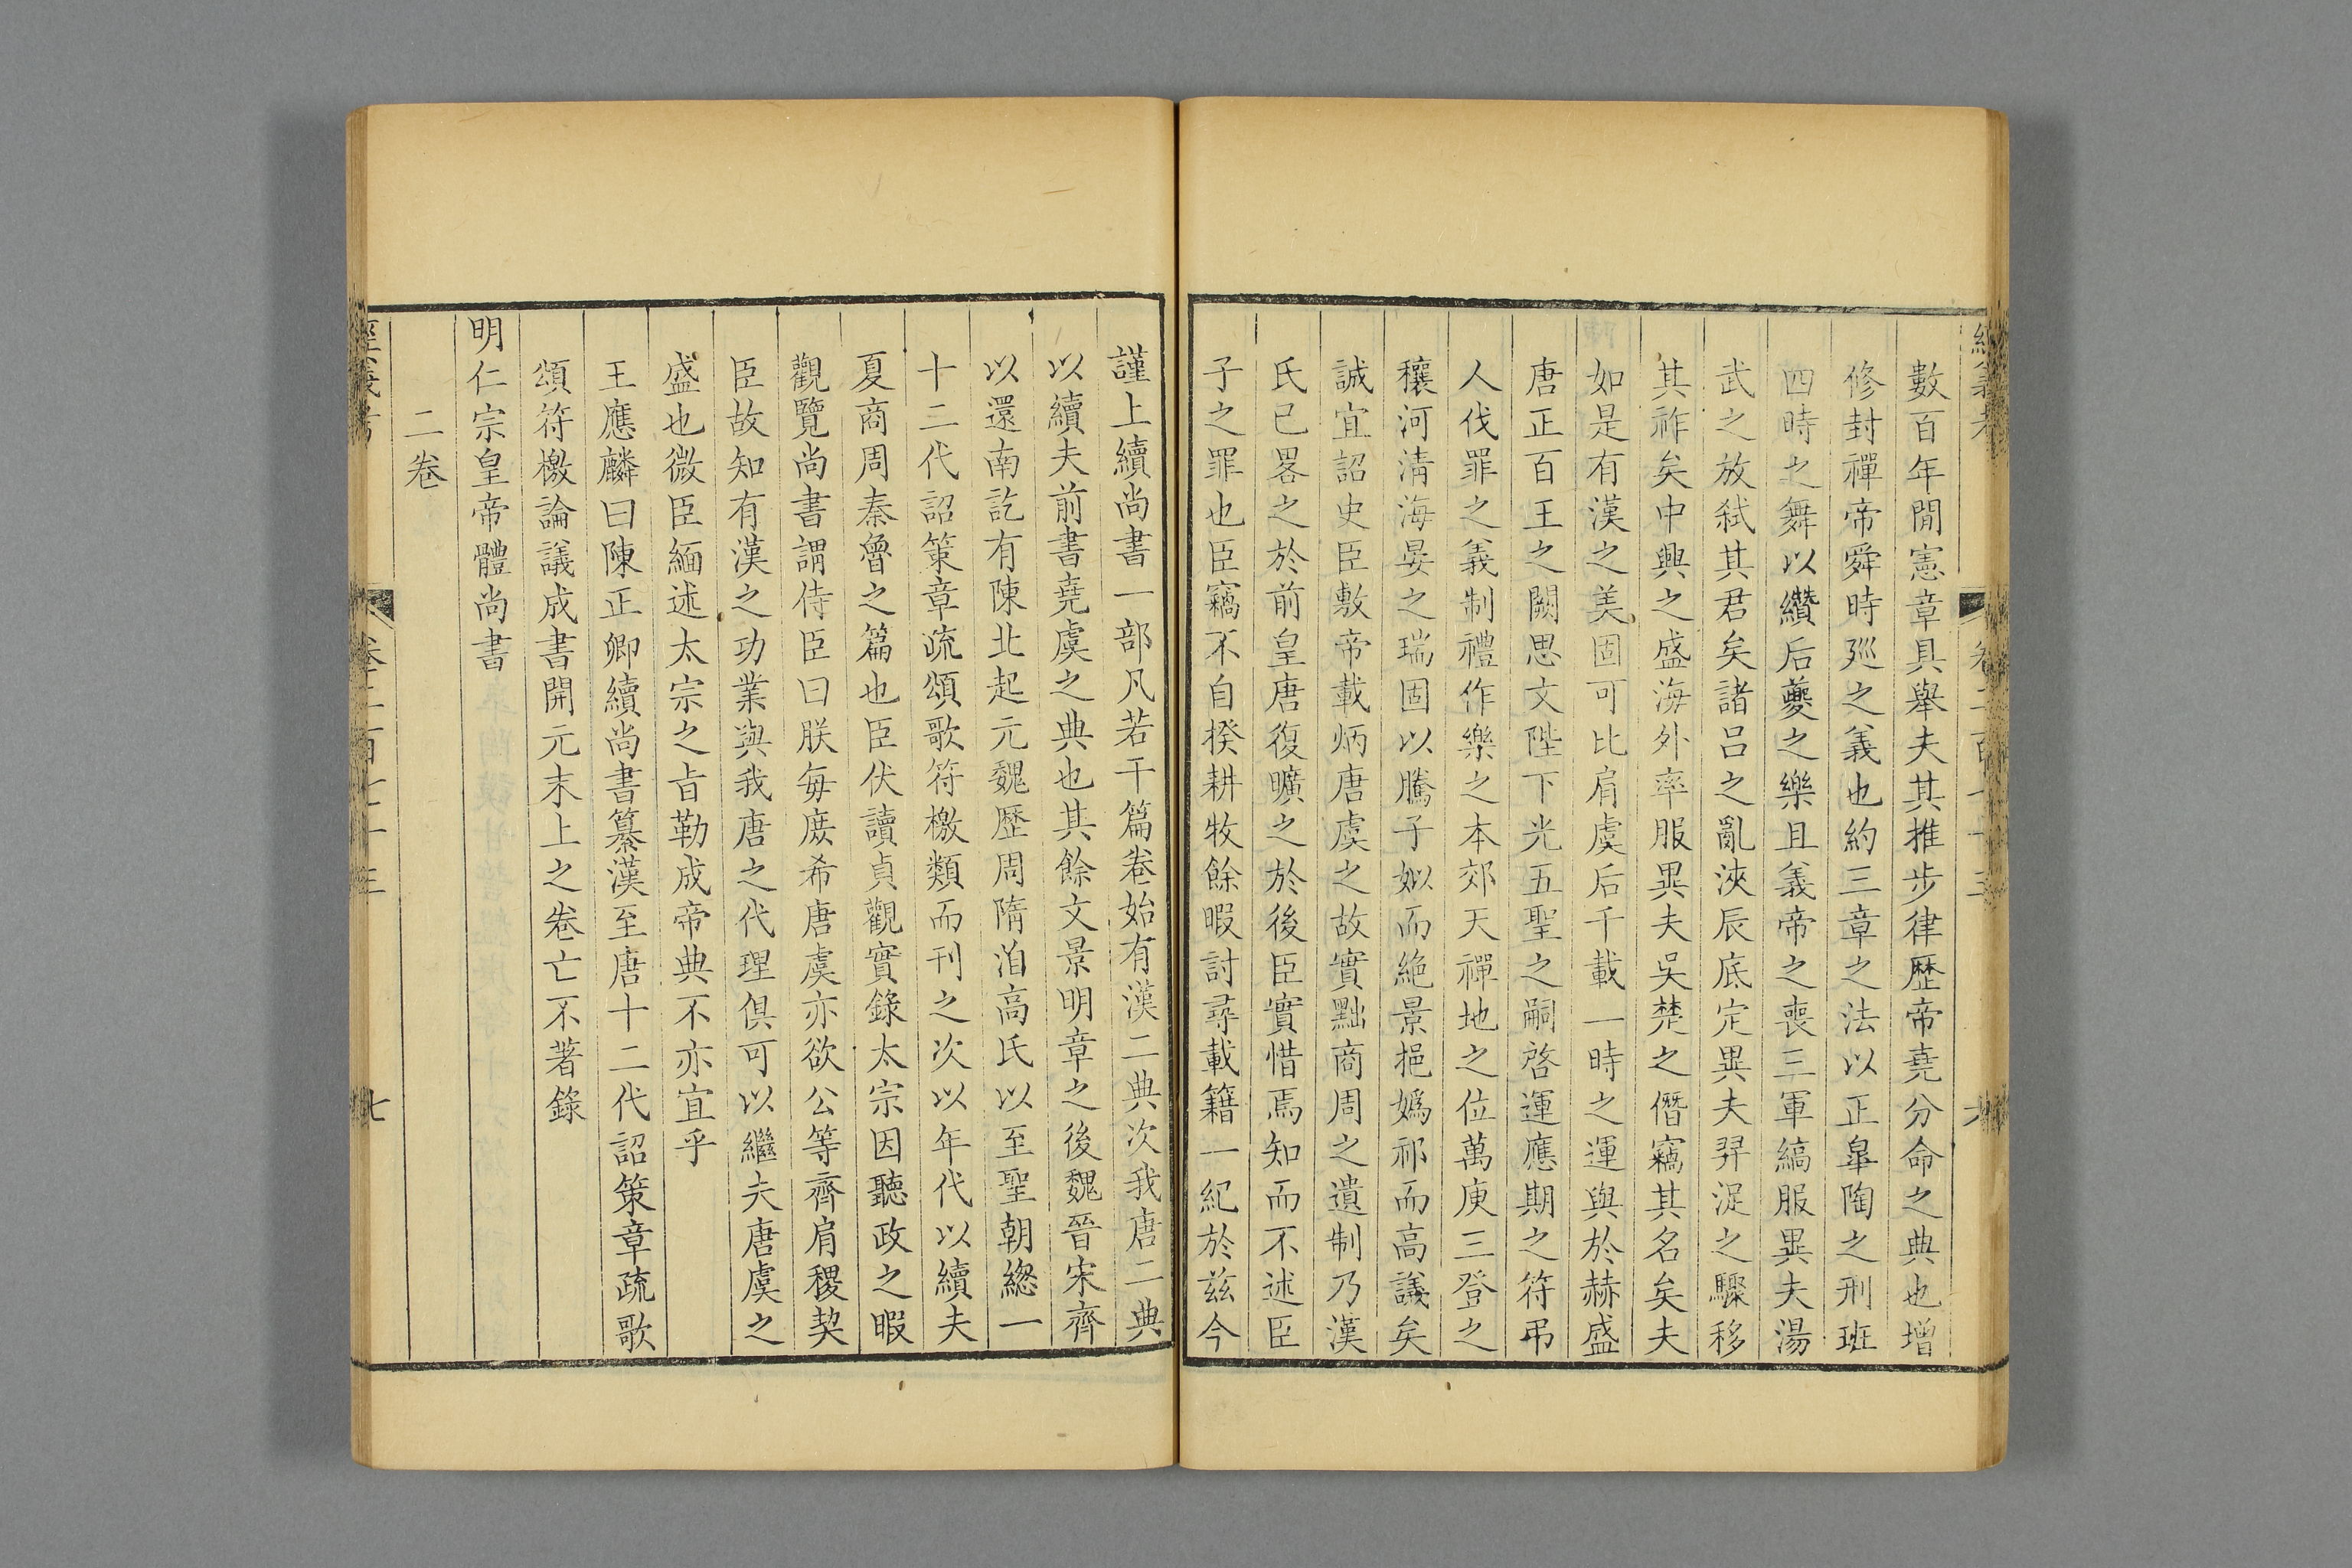 數百年閒憲章具舉夫其推步律歷帝堯分命之典也增
修封禪帝舜時廵之義也約三章之法以正臯陶之刑班
四時之舞以纘后夔之樂且義帝之喪三軍縞服異夫湯
武之放弑其君矣諸呂之亂浹辰底定異夫羿浞之驟移
其祚矣中興之盛海外率服異夫吳楚之僭竊其名矣夫
如是有漢之美固可比肩虞后千載一時之運與於赫盛
唐正百王之闕思文陛下光五聖之嗣啓運應期之符弔
人伐罪之義制禮作樂之本郊天禪地之位萬庾三登之
穰河淸海晏之瑞固以騰子姒而絶景挹嬀祁而高議矣
誠宜詔史臣敷帝載炳唐虞之故實黜商周之遺制乃漢
氏已畧之於前皇唐復曠之於後臣實惜焉知而不述臣
子之罪也臣竊不自揆耕牧餘暇討尋載籍一紀於兹今
謹上續尚書一部凡若干篇卷始有漢二典次我唐二典
以續夫前書堯虞之典也其餘文景明章之後魏晉宋齊
以還南訖有陳北起元魏歷周隋洎高氏以至聖朝緫一
十二代詔策章疏頌歌符檄類而刊之次以年代以續夫
夏商周秦魯之篇也臣伏讀貞觀實錄太宗因聽政之暇
觀覽尚書謂侍臣曰朕每庶希唐虞亦欲公等齊肩稷契
臣故知有漢之功業與我唐之代理俱可以繼夫唐虞之
盛也微臣緬述太宗之旨勒成帝典不亦宜乎
王應麟曰陳正卿續尚書纂漢至唐十二代詔策章疏歌
頌符檄論議成書開元末上之卷亡不著錄
明仁宗皇帝體尚書
二卷
經義考
卷二百七十三
七